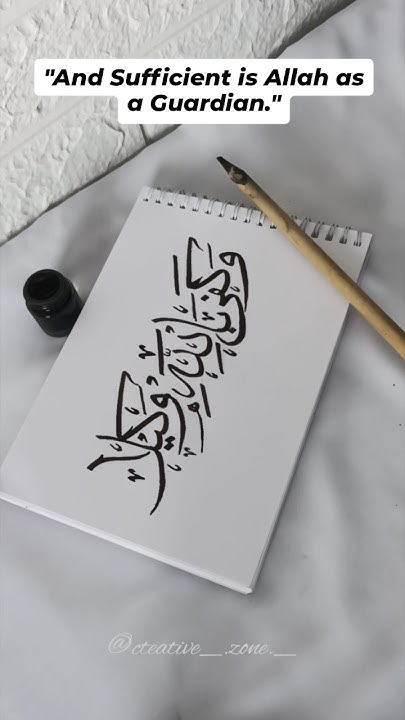 "And Sufficient is Allah as
a Guardian."
وكفى بالله وكيلا
@cteative__.zone.__